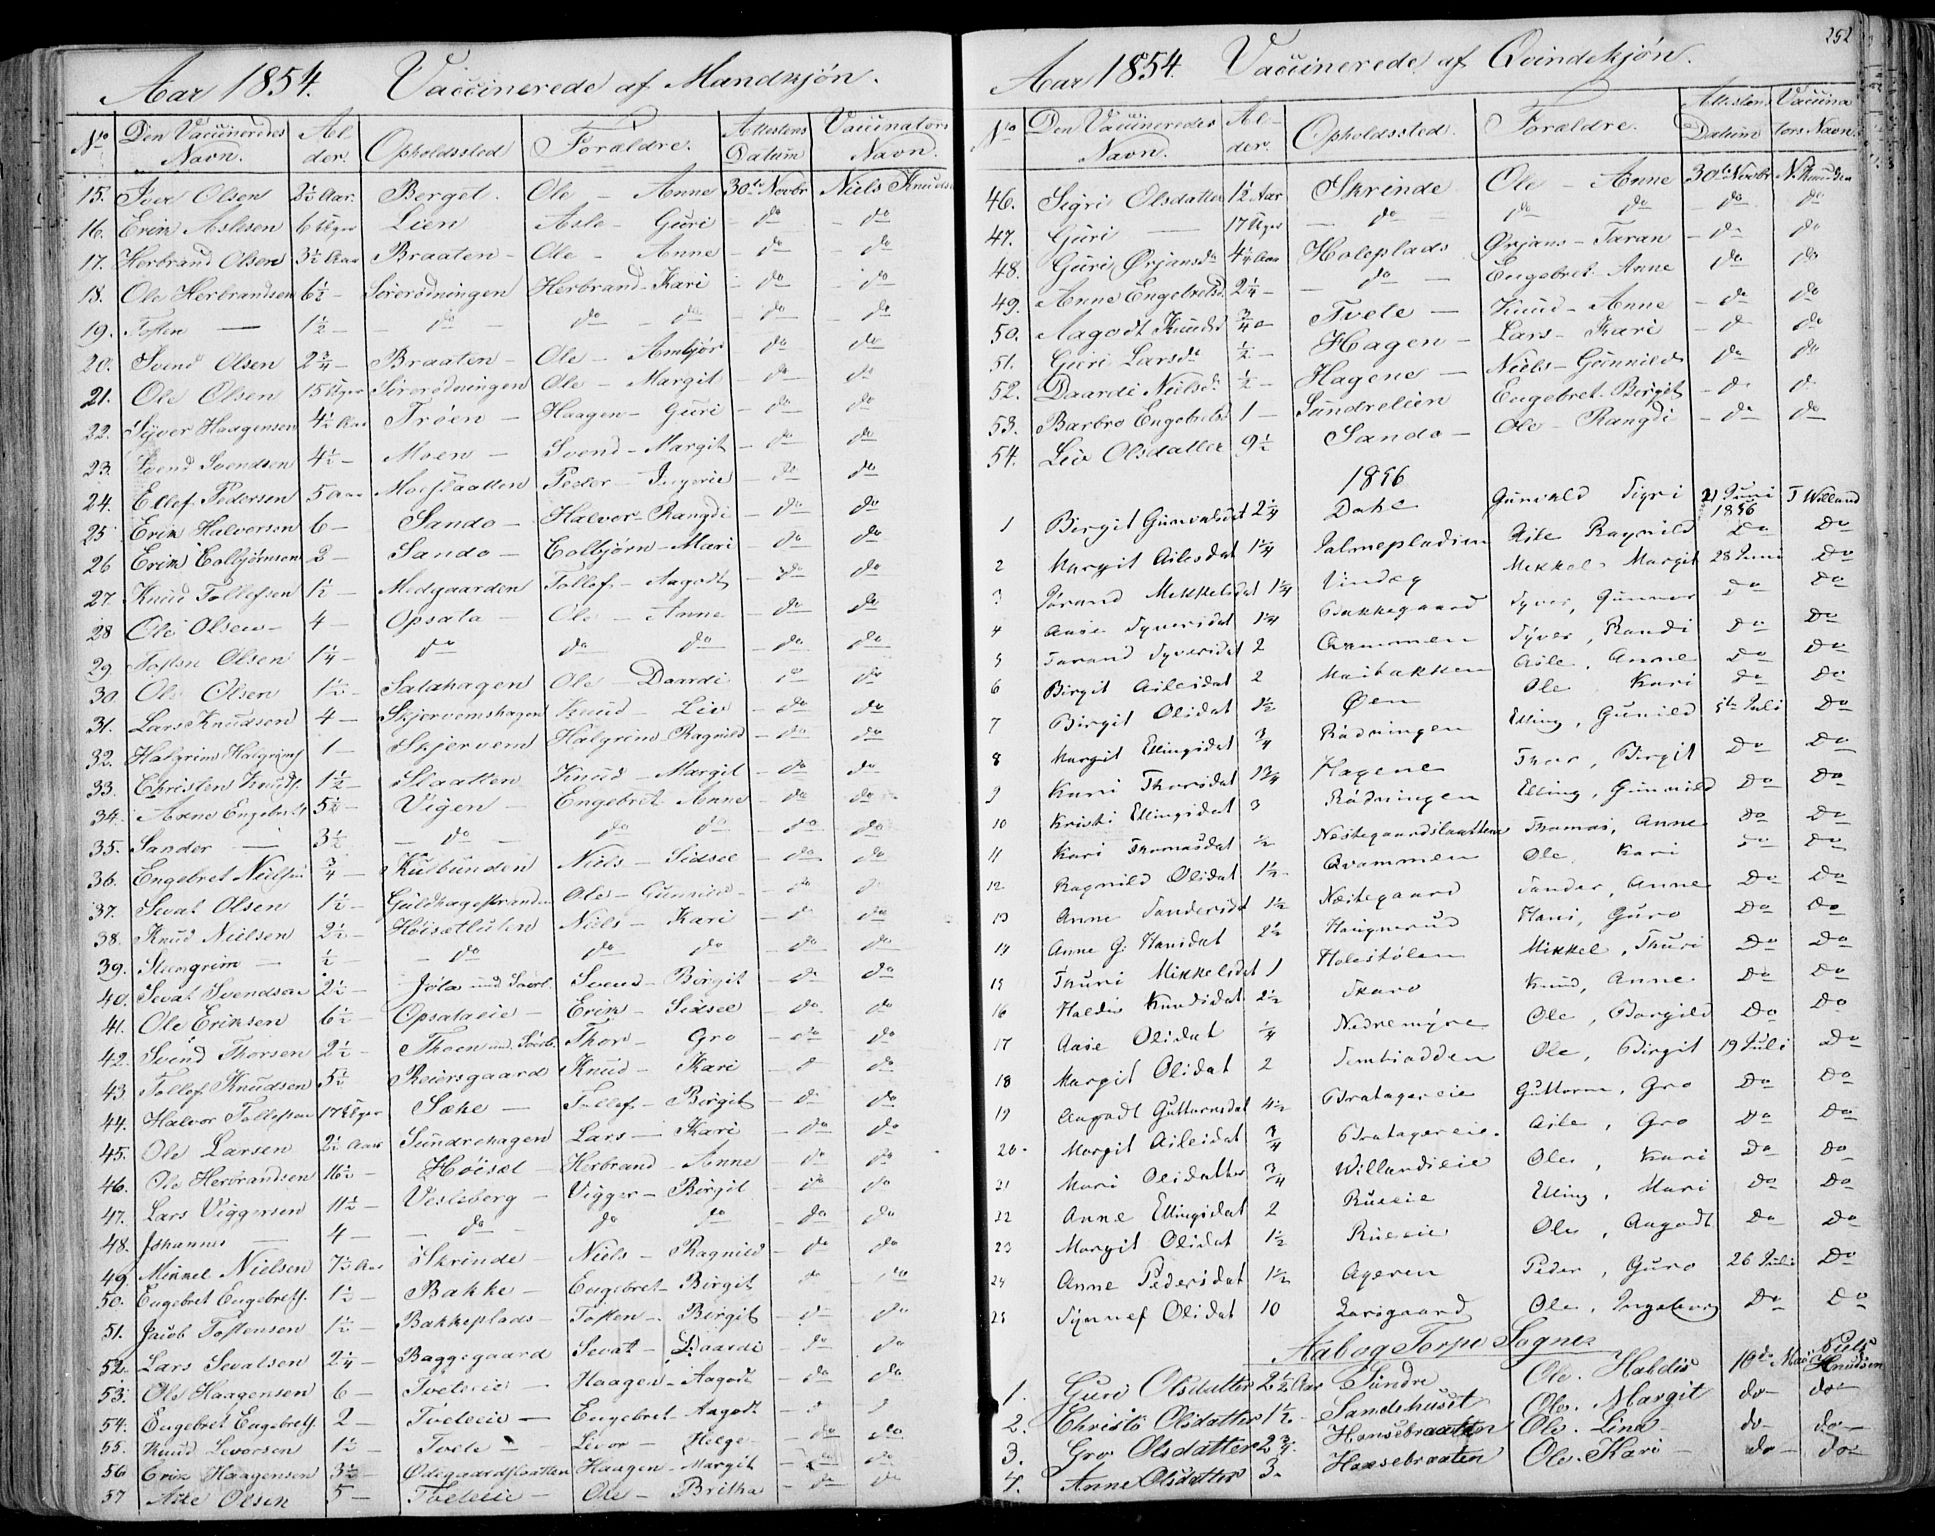 Aar 1854. Vaccinerede af Mandkjøn.
No Den Vaccineredes Navn. Alder. Opholdssted Forældre. Attestens Datum Vaccinators Navn.
15. Iver Olsen 2½ Aar. Berget. Ole - Anne 30te Novbr Niels Knudsen
16. Erik Aslesen 6 Uger Lien Asle - Guri - do - do
17. Herbrand Olsen 3½ Aar Braaten - Ole - Anne - do - do
18. Ole Herbrandsen 6½ - Sørerødningen Herbrand - Kari - do - do
19. Tosten — 1½ - - do - do - do - do - do
20. Svend Olsen 2¾ - Braaten - Ole - Ambjør do - do
21. Ole Olsen 15 Uger Sørerødningen Ole - Margit - do - do
22. Syver Haagensen 4½ Aar Trøen - Haagen - Guri - do do
23. Svend Svendsen 4½ - Moen - Svend - Margit - do do
24. Ellef Pedersen 5 Aar Moeslaatten Peder - Ingerie - do do
25 Erik Halvorsen 6 - Sando - Halvor - Rangdi - do do
26 Erik Colbjørnsen 3 - Sando - Colbjørn - Mari do do
27. Knud Tollefsen 1½ - Medgaarden Tollef - Aagodt - do do
28 Ole Olsen - 4 - Opsata - Ole - Anne - do do
29. Tosten Olsen 1¼ - do do do - do do
30. Ole Olsen 1½ - Satahagen Ole - Daardi do do
31. Lars Knudsen 4 - Skjervemshagen Knud - Liv - do do
32. Halgrim Halgrims. 1 - Skjervem Halgrim Ragnild - do do
33. Christen Knuds. 1½ - Slaatten Knud - Margit - do do
34. Arne Engebrets. 5½ - Vigen - Engebret Anne - do do
35. Sander — 3½ - - do - do do - do do
36. Engebret Nielsen ¾ - Kulbunden Niels - Sidsel - do do
37. Sevat Olsen 1½ - Guldhagestranden Ole - Gunnild - do do
38. Knud Nielsen 2½ - Høisetluten Niels - Kari - do do
39. Steingrim — ½ - - do do do - do do
40. Sevat Svendsen 2½ - Svend - Birgit - do do
41. Ole Eriksen 6½ - Opsataeie - Erik - Sidsel - do do
42. Svend Thorsen 2½ - Thor - Gro - do do
43 Tollef Knudsen 5½ - Reiersgaard Knud - Kari do do
44. Halvor Tollefsen 17 Uger Sæhe - Tollef - Birgit - do do
45. Ole Larsen 2½ Aar Sundrehagen Lars - Kari do do
46. Ole Herbrandsen 16½ - Høiset - Herbrand - Anne do do
47. Lars Viggersen 11½ - Vesleberg - Vigger - Birgit - do do
48. Johannes — 4 - - do - do do - do do
49. Mikkel Nielsen 7½ Aar Skrinde Niels - Ragnild - do do
50. Engebret Engebrets. 1½ - Bakke - Engebret - Birgit do do
51. Jacob Tostensen 1½ - Bakkeplads - Tosten - Birgit - do do
52. Lars Sevatsen 2¼ - Baggegaard Sevat - Daardi - do do
53. Ole Haagensen 6 - Tveteeie - Haagen - Aagodt - do do
54. Engebret Engebrets. 2 - Tveteeie - Engebret - Aagodt - do do
55. Knud Levorsen 1½ - Tvete - Levor - Helge - do do
56 Erik Haagensen 3½ - Ødegaardslaatten Haagen - Margit - do do
57 Asle Olsen 5 - Tveteeie - Ole - Britha - do do
252
Aar 1854. Vaccinerede af Qvindekjøn.
No Den Vaccineredes Navn. Alder. Opholdssted. Forældre. Attestens Datum Vaccinators Navn.
46. Sigri Olsdatter 1½ Aar Skrinde Ole - Anne 30te Novbr N. Knudsen
47. Guri — 17 Uger - do - do do - do do
48. Guri Ørjansd. 4¼ Aar Holeplads Ørjans - Taran - do do
49. Anne Engebretsd. 2¼ - - do - Engebret - Anne do do
50. Aagodt Knudsd ¾ - Tvete - Knud - Anne - do do
51. Guri Larsda ½ - Hagen - Lars - Kari - do do
52. Daardi Nielsd. ½ - Hagene - Niels - Gunnild do do
53. Barbro Engebretsd 1 - Sundrelien Engebret - Birgit - do do
54. Liv Olsdatter 9½ Sando - Ole - Rangdi - do do
1856
1 Birgit Gunvaldsdat 2¼ Dahl Gunvald Sigri 21 Juni 1856 T Willand
2 Margit Aslesdat 1¼ Asle Ragnild Do Do
3 Jørand Mikkelsdat 1¼ Lindeg Mikkel Margit 28 Juni Do
4 Aase Syversdat 1¼ Bakkegaard Syver, Gunnor Do Do
5 Tarand Syversdat 2 Qvammen Syver, Randi Do Do
6 Birgit Aslesdat 2 Maibakken Asle, Anne Do Do
7 Birgit Olsdat 1½ Øen Ole Kari Do Do
8 Margit Ellingsdat ¾ Rødningen Elling, Gunild 5te Juli Do
9 Kari Thorsdat 1¾ Hagene Thor, Birgit Do Do
10 Kristi Ellingsdat 3 Rødningen Elling, Gunnild Do Do
11 Kari Thomasdat ½ Nestegaardslaatten Thomas, Anne Do Do
12 Ragnild Olsdat 1½ Qvammen Ole Kari Do Do
13 Anne Sandersdat 1½ Nestegaard Sander, Anne Do Do
14 Anne G: Hansdat 2½ Haugnerud Hans, Guro Do Do
15 Thuri Mikkelsdat 1 Holestølen Mikkel, Thuri Do Do
16 Haldis Knudsdat 2½ Skaro Knud, Anne Do Do
17 Aase Olsdat ¼ Nedremyre Ole, Borgild Do Do
18 Margit Olsdat 2 Ole, Birgit 19 Juli Do
19 Aagodt Guttormsdat 4½ Bratagereie Guttorm, Gro Do Do
20. Margit Aslesdat ¾ Bratagereie. Asle, Gro Do Do
21 Mari Olsdatter ¾ Willandseie Ole, Kari Do Do
22 Anne Ellingsdat 2 Rueeie Elling, Mari Do Do
23 Margit Olsdat 1½ Rueeie Ole, Aagodt Do Do
24 Anne Pedersdat 1½ Ageren Peder, Guro 26 Juli Do
25 Synnef Olsdat 10 Larsgaard Ole, Ingeborg Do Do
Aal og Torpe Sogne
1. Guri Olsdatter 2½ Aar Sundre Ole. Haldis 10de Mai Niels Knudsen
2. Christi Olsdatter 1½ - Sandehuset Ole. Margit do - do -
3. Gro Olsdatter 2¾. Hansebraatten Ole. Lina do - do -
4. Anne Olsdatter 3. Hansebraaten Ole. Kari - do - do -